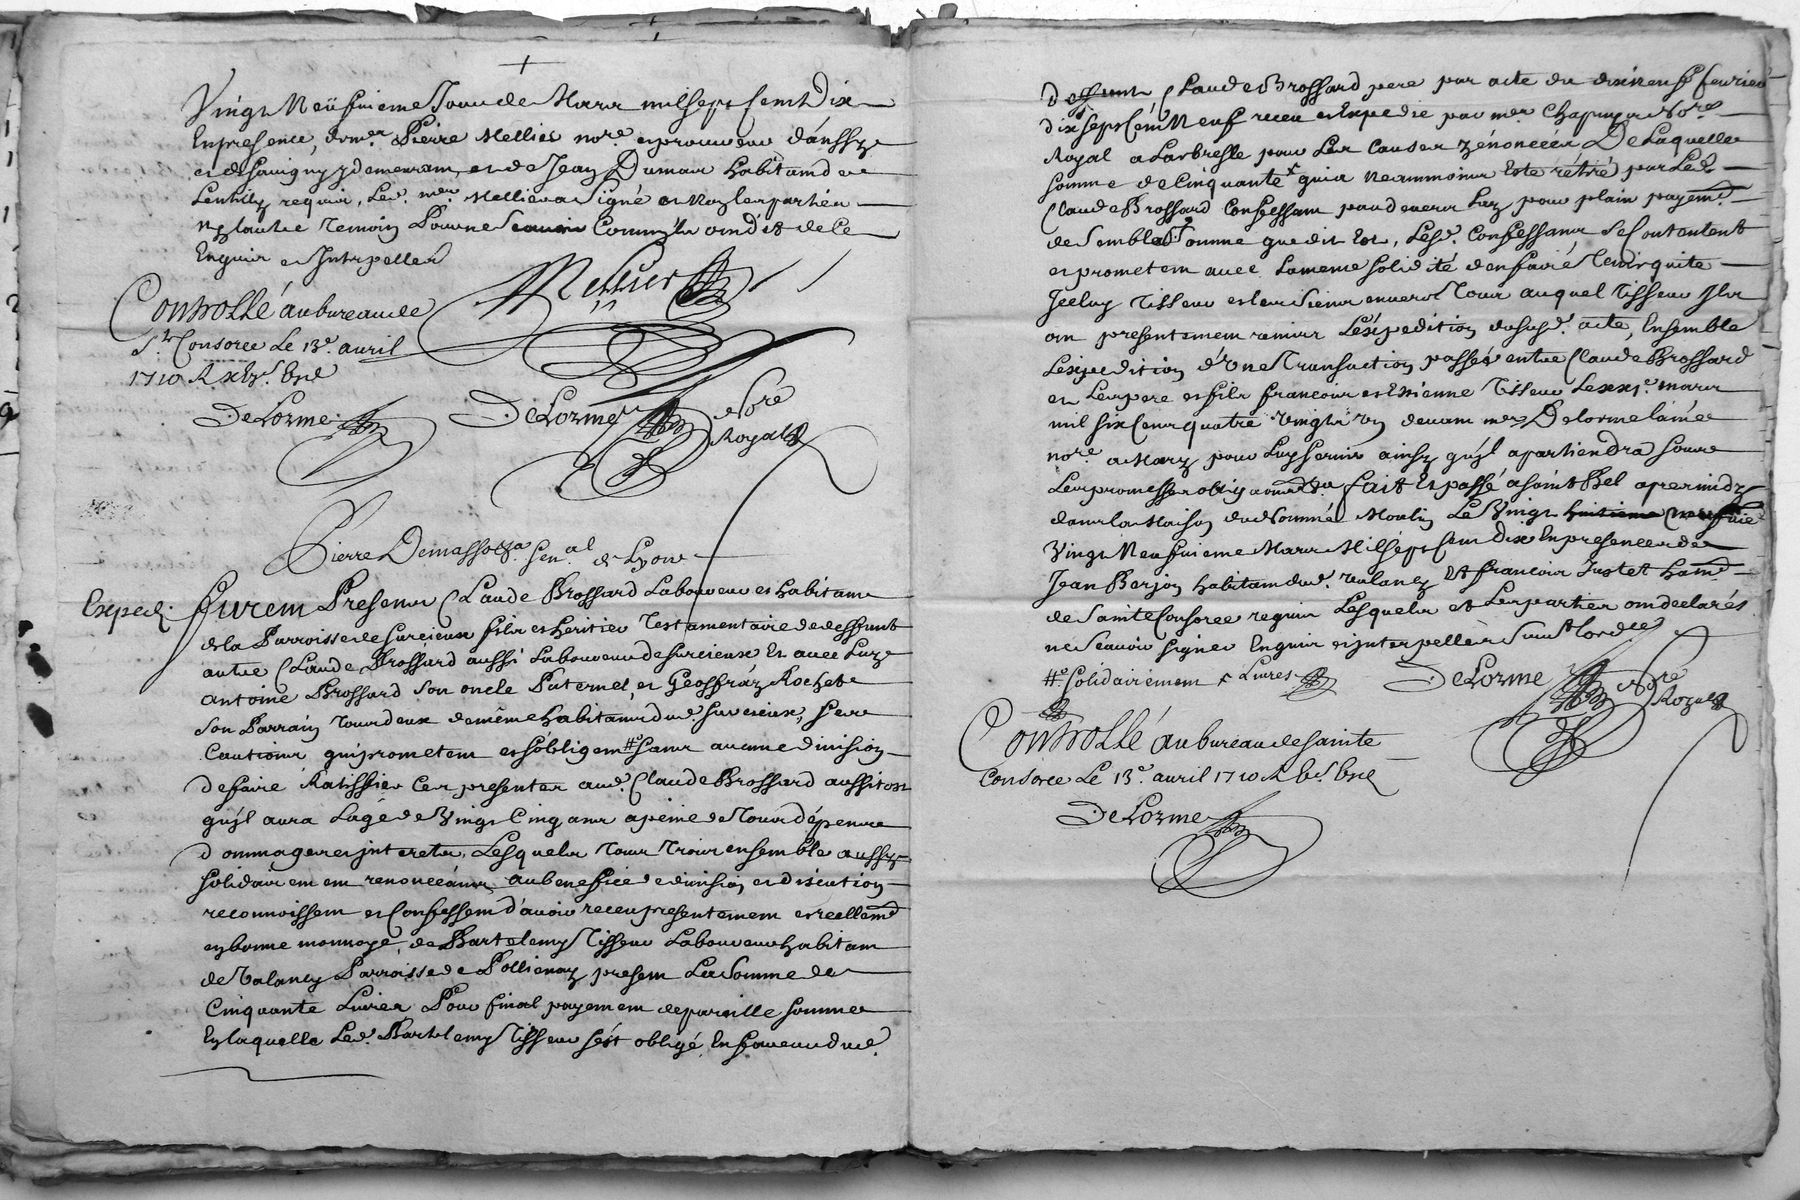 Vingt Neufuieme Jour de Mars mil sept Cent Dix
En presence, de mer. Pierre Mellier nore. et procureur d'anssy
et de Savigny y demeurant, et de Jean Dumas habitant de
Lentilly requis, Led. mer. Mellier a Signé et Non les parties
Ny lautre Temoin Pour ne Scavoir Comm'ils ont dit de Ce
Enquis et Interpellés
Mellier
Controllé au bureau de
Ste. Consorce Le 13e. auril
1710 R
DeLorme
DeLorme Nore
Royal
Pierre Demasso Sa. Gen.al de Lyon
Exped. Furent Presents Claude Brossard Laboureur et habitant
de la Parroisse de Surcieux fils et heritier Testamentaire de deffunt
autre Claude Brossard aussi Laboureur de Surcieux Et avec Luy
antoine Brossard Son oncle Paternel, et Geoffray Rochet
Son Parrain Tous deux de même habitants dud. Surcieux, Ses
Cautions qui prometent et S'obligent # Sans aucune division
de faire Ratiffier Ces presentes aud. Claude Brossard aussitost
qu'il aura L'age de Vingt Cinq ans a peine de Tous dépens
dommages et jnterets, Lesquels Tous Trois ensemble aussy
solidairement renonceants au beneffice de division et discution
reconnoissent et Confessent d'auoir receu presentement et reellemt.
en bonne monnoye, de Bartelemy Tisseur Laboureur habitant
de Valancy Parroisse de Pollienay present La Somme de
Cinquante Liures Pour final payement de pareille Somme
En laquelle Led. Bartelemy Tisseur s'est obligé En faueur dud.
Deffunt Claude Brossard pere par acte du dixneuf feurier
dix sept Cent Neuf receu et Expedie par mer. Chapuy Nore.
Royal a Larbresle pour Les Causes y énoncées De Laquelle
Somme de Cinquante x qui a Neammoins Este rétiré par Led.
Claude Brossard Confessant pardeuers Luy pour plain payemt.
de Semblable Somme que dit Est, Lesd. Confessants Se Contentent
et prometent auec La meme Solidité d'en faire Tenir quite
Jceluy Tisseur et les Siens enuers Tous auquel Tisseur Jls
ont presentement remis L'éxpedition du Susd. acte, Ensemble
L'éxpedition d'Vne Transaction passée entre Claude Brossard
et Les pere et fils francois et Estienne Tisseur Le xxje. mars
mil six Cent quatre Vingts Vn devant mer Delorme lainé
nore. a Marzy pour Luy Seruir ainsy qu'jl apartiendra Sous
Les promesses obligaons. &a fait Et passé a Saint Bel apres midy
dans la Maison du Nommé Moulin Le Vingt huitieme neufuie
Vingt Neufuieme Mars Mil sept Cent Dix En presence de
Jean Berjon habitant dud. Valancy Et francois Justet habt.
de Sainte Consorce requis Lesquels et Les parties ont declarés
ne Scauoir Signer Enquis et interpellés Suiut. Lordce.
# Solidairement x Liures
DeLorme Nore
Royal
Controllé au bureau de Sainte
Consorce Le 13e. auril 1710 R
DeLorme